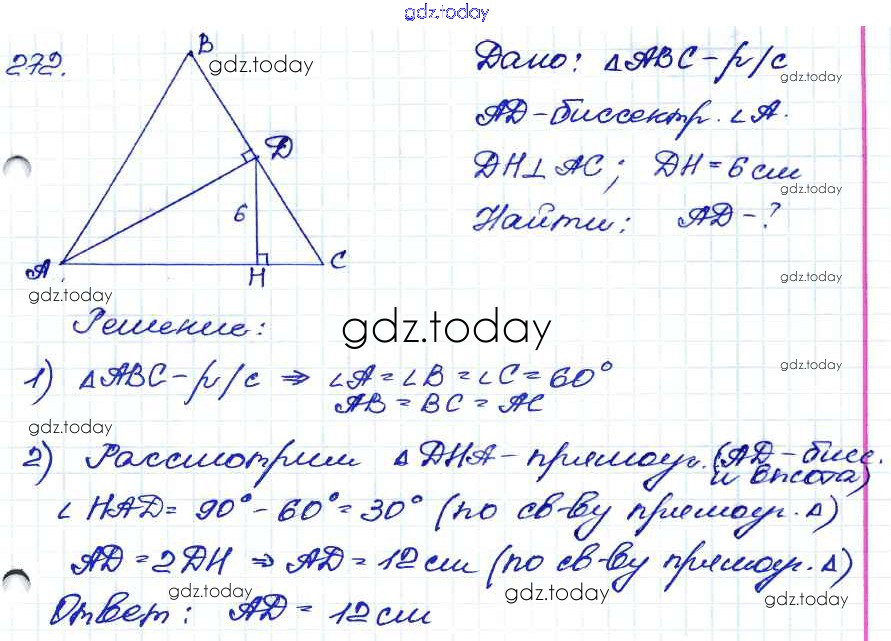 gdz.today
272.
B
gdz.today
D
6
A
H
C
gdz.today
Дано: △ABC – р/с
gdz.today
AD – биссектр. ∠A.
DH⊥AC; DH = 6 см
gdz.today
Найти: AD – ?
gdz.today
Решение:
gdz.today
gdz.today
1) △ABC – р/с ⇒ ∠A = ∠B = ∠C = 60°
AB = BC = AC
gdz.today
2) Рассмотрим △DHA – прямоуг. (AD – бисс.
и высота)
∠HAD = 90° – 60° = 30° (по св-ву прямоуг. △)
AD = 2DH ⇒ AD = 12 см (по св-ву прямоуг. △)
gdz.today
gdz.today
gdz.today
Ответ: AD = 12 см